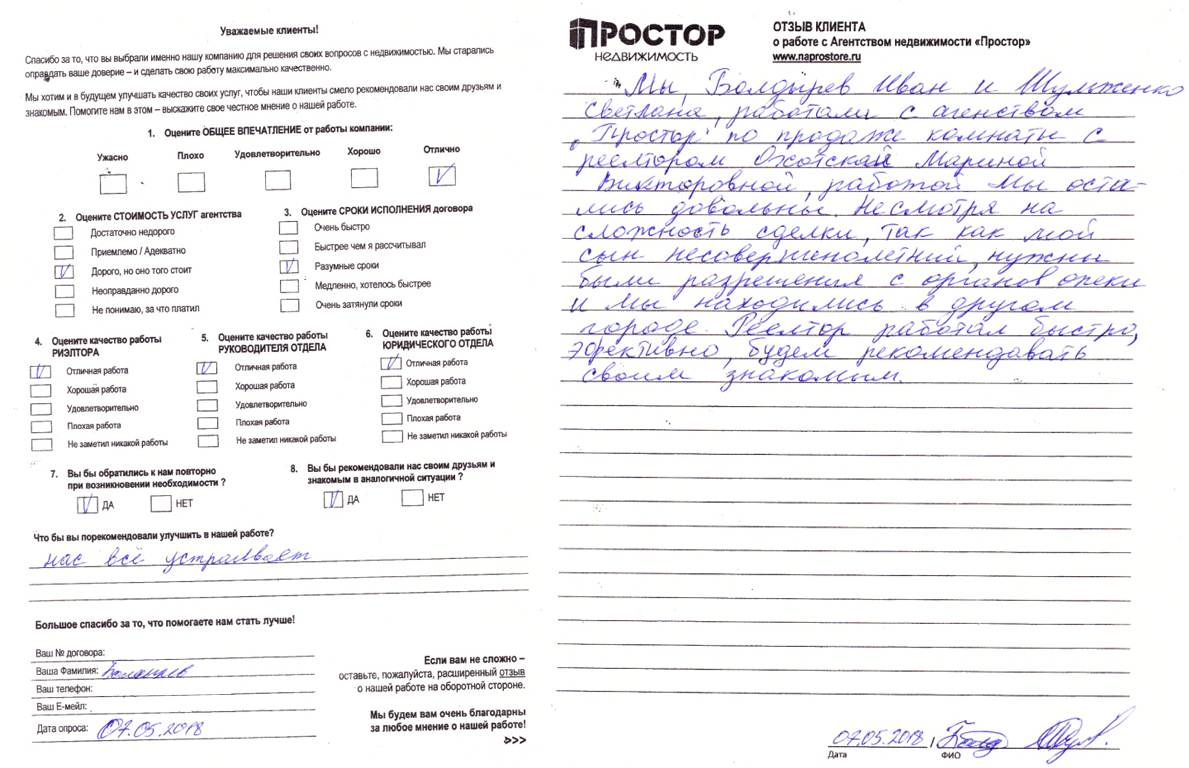 Уважаемые клиенты!
Спасибо за то, что вы выбрали именно нашу компанию для решения своих вопросов с недвижимостью. Мы старались
оправдать ваше доверие – и сделать свою работу максимально качественно.
Мы хотим и в будущем улучшать качество своих услуг, чтобы наши клиенты смело рекомендовали нас своим друзьям и
знакомым. Помогите нам в этом – выскажите свое честное мнение о нашей работе.
1. Оцените ОБЩЕЕ ВПЕЧАТЛЕНИЕ от работы компании:
Ужасно Плохо Удовлетворительно Хорошо Отлично
V
2. Оцените СТОИМОСТЬ УСЛУГ агентства
Достаточно недорого
Приемлемо / Адекватно
V Дорого, но оно того стоит
Неоправданно дорого
Не понимаю, за что платил
3. Оцените СРОКИ ИСПОЛНЕНИЯ договора
Очень быстро
Быстрее чем я рассчитывал
V Разумные сроки
Медленно, хотелось быстрее
Очень затянули сроки
4. Оцените качество работы
РИЭЛТОРА
V Отличная работа
Хорошая работа
Удовлетворительно
Плохая работа
Не заметил никакой работы
5. Оцените качество работы
РУКОВОДИТЕЛЯ ОТДЕЛА
V Отличная работа
Хорошая работа
Удовлетворительно
Плохая работа
Не заметил никакой работы
6. Оцените качество работы
ЮРИДИЧЕСКОГО ОТДЕЛА
V Отличная работа
Хорошая работа
Удовлетворительно
Плохая работа
Не заметил никакой работы
7. Вы бы обратились к нам повторно
при возникновении необходимости ?
V ДА НЕТ
8. Вы бы рекомендовали нас своим друзьям и
знакомым в аналогичной ситуации ?
V ДА НЕТ
Что бы вы порекомендовали улучшить в нашей работе?
нас всё устраивает
Большое спасибо за то, что помогаете нам стать лучше!
Ваш № договора:
Ваша Фамилия: Болдырев
Ваш телефон:
Ваш Е-мейл:
Дата опроса: 07.05.2018
Если вам не сложно –
оставьте, пожалуйста, расширенный отзыв
о нашей работе на оборотной стороне.
Мы будем вам очень благодарны
за любое мнение о нашей работе!
>>>
ПРОСТОР
НЕДВИЖИМОСТЬ
ОТЗЫВ КЛИЕНТА
о работе с Агентством недвижимости «Простор»
www.naprostore.ru
Мы, Болдырев Иван и Шульженко
Светлана, работали с агенством
"Простор" по продаже комнаты с
реелтором Охотской Мариной
Викторовной, работой мы оста-
лись довольны. Несмотря на
сложность сделки, так как мой
сын несовершенолетний, нужны
были разрешения с органов опеки
и мы находились в другом
городе. Реелтор работал быстро,
эфективно, будем рекомендавать
своим знакомым.
07.05.2018 /
Дата ФИО